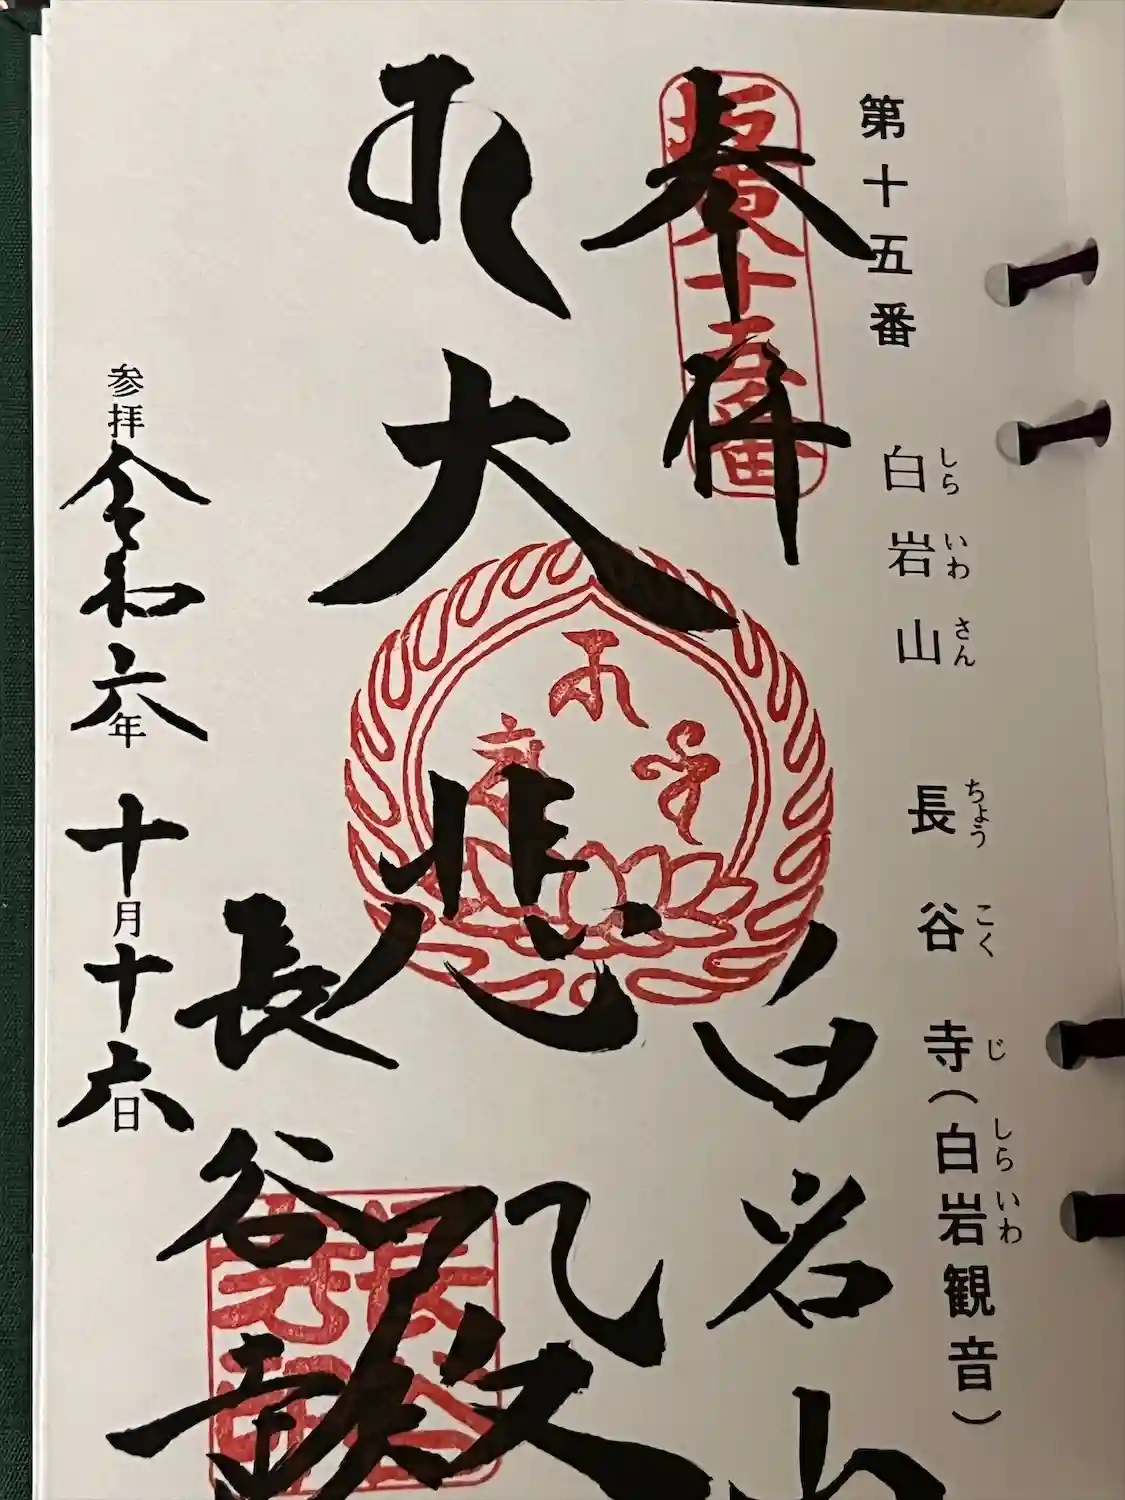 第十五番 白岩山 長谷寺(白岩観音)
しらいわさん ちょうこくじ しらいわ
奉拝
坂東十五番
白岩山
大悲殿
長谷寺
参拝 令和六年 十月十六日